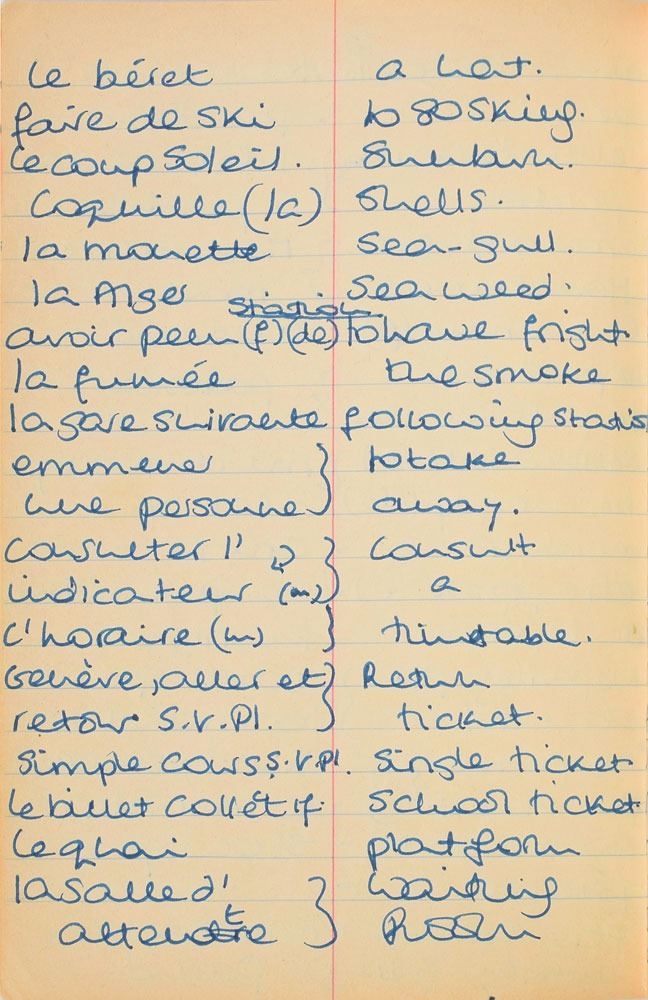 le béret a hat.
faire de ski to go skiing.
le coup soleil. Sunburn.
Coquille (la) Shells.
la mouette Sea-gull.
la Alger Sea weed.
station
avoir peur (f) (de) to have fright
la fumée the smoke
la gare suivante following station
emmener to take
une personne away.
Consulter l' Consult
indicateur (m) a
l'horaire (m) timetable.
Genève, aller et Return
retour S.V.Pl. ticket.
Simple cours S.V.Pl. Single ticket
le billet Collétif School ticket
le quai platform
la salle d' Waiting
attente Room